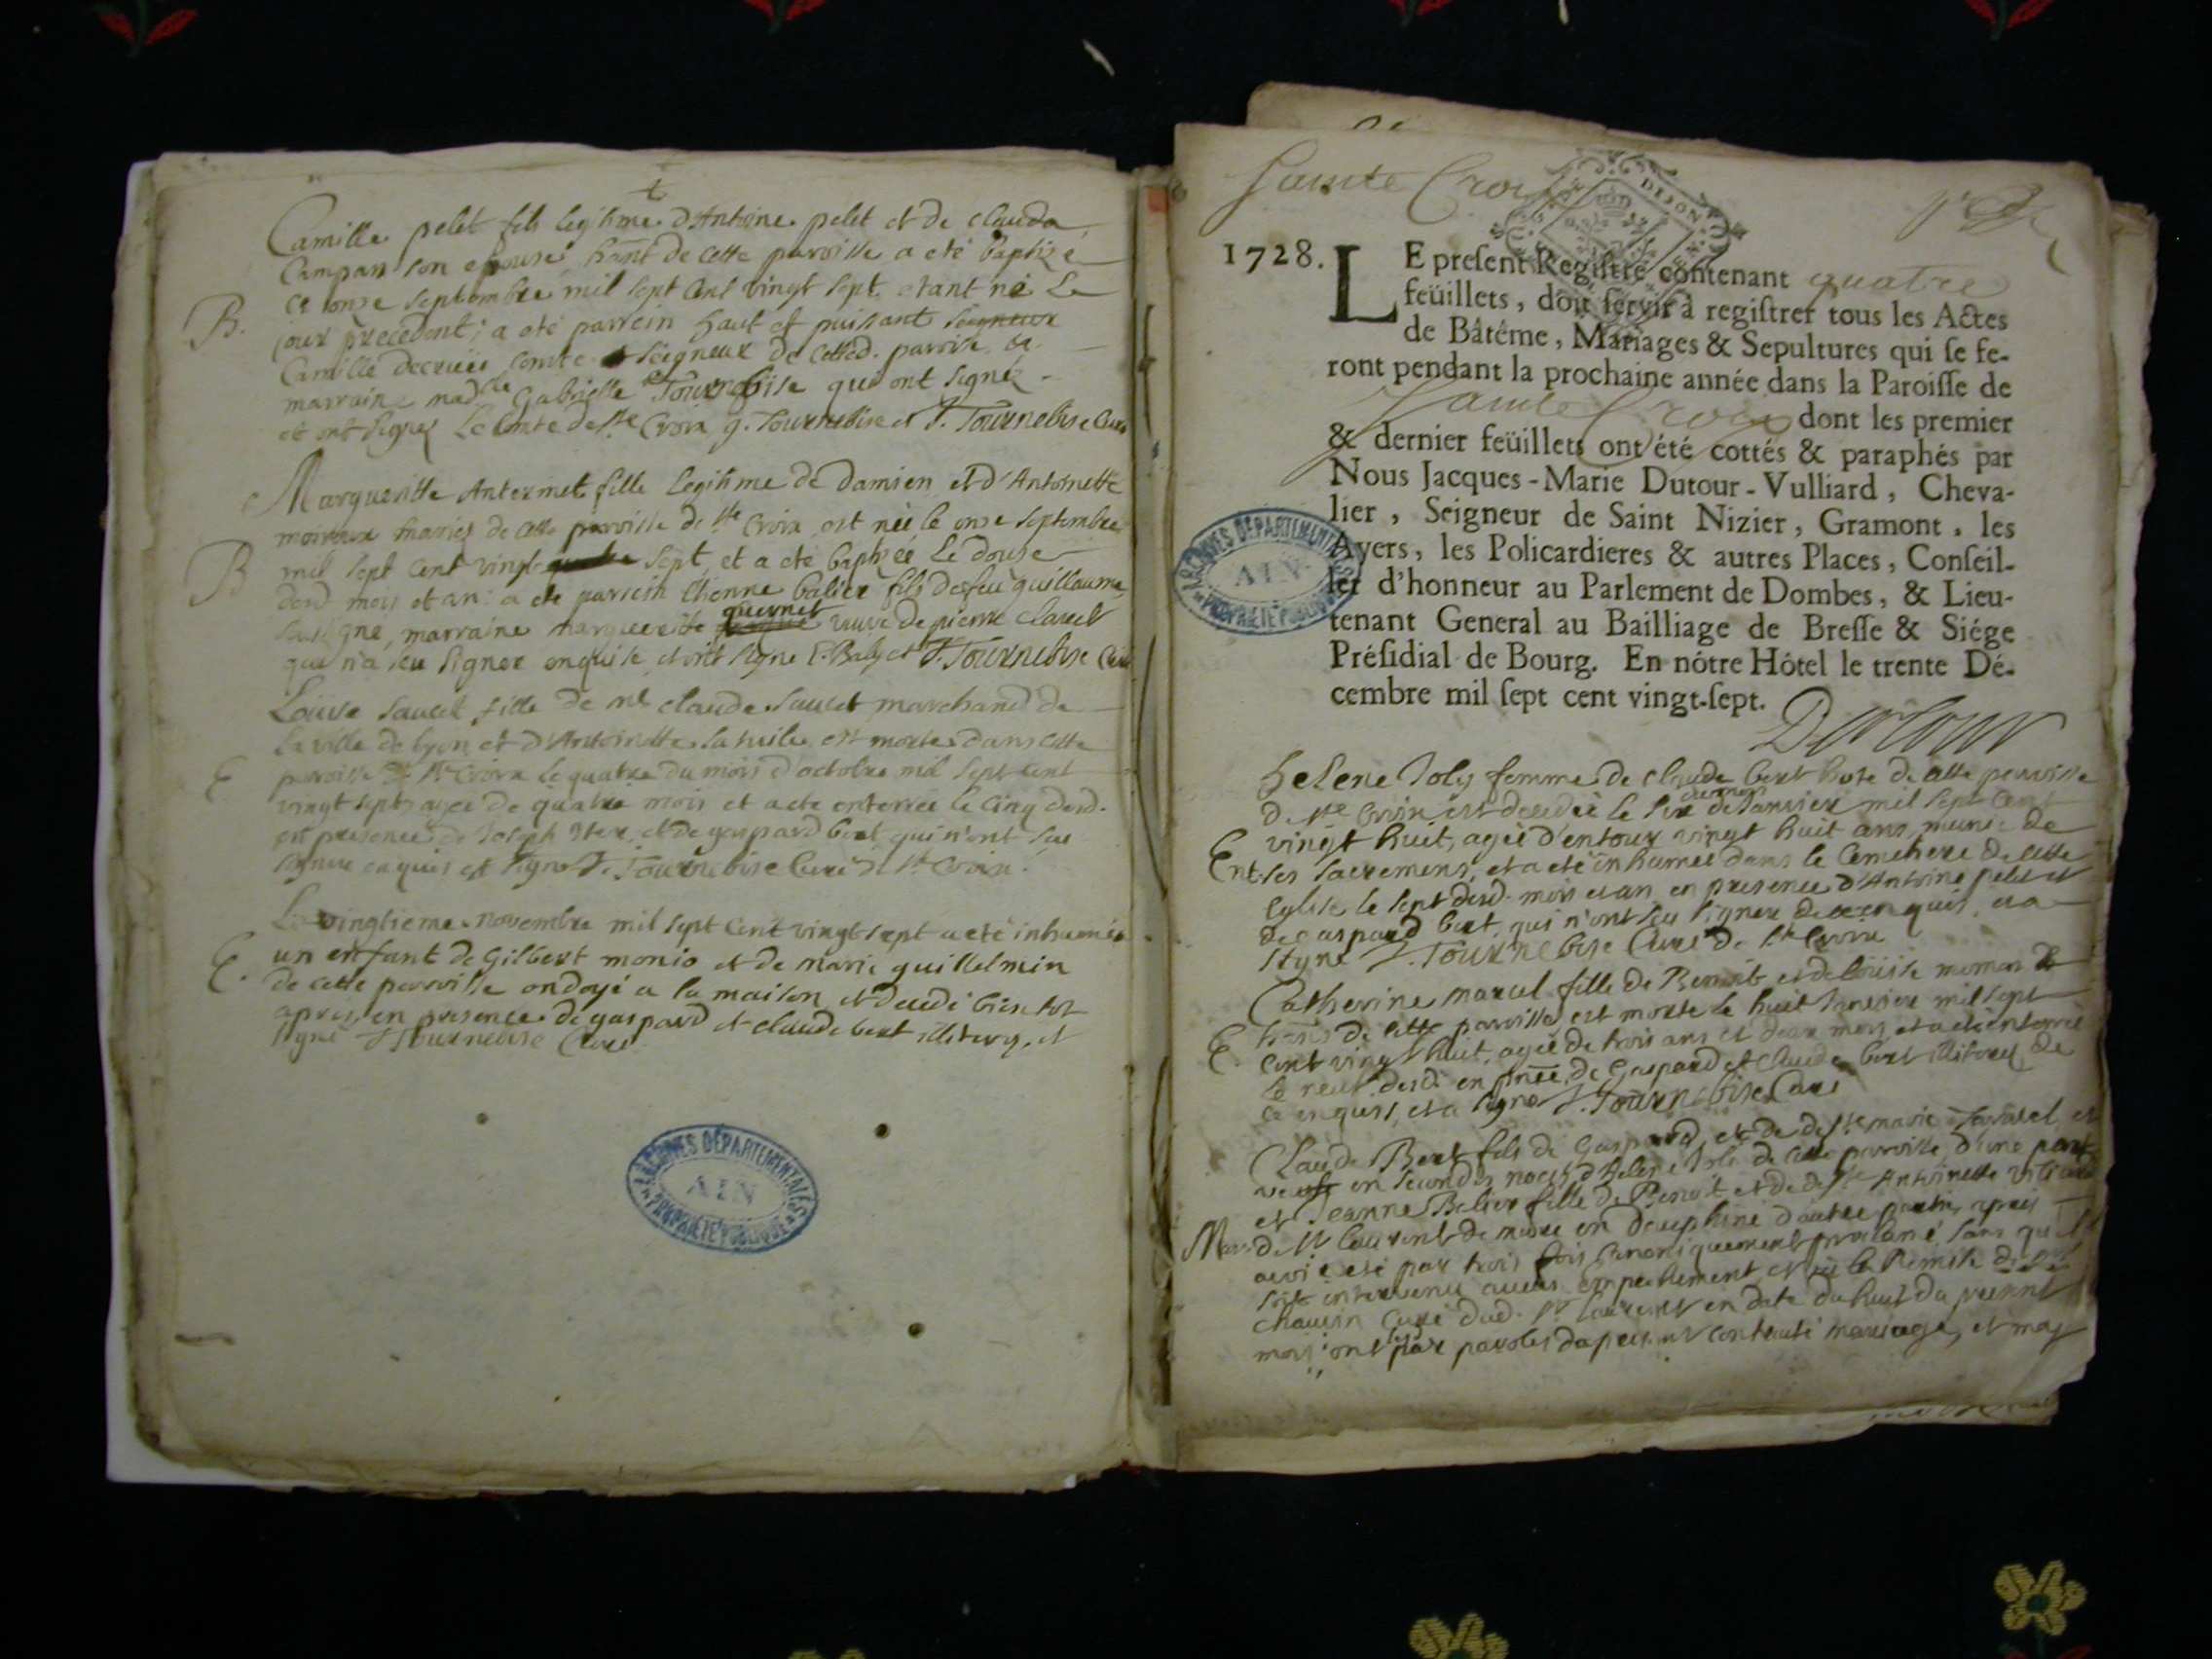 Camille pelet fils legitime d'Antoine pelet et de clauda
Campan son epouse hant de cette paroisse a eté baptizé
ce onze septembre mil sept cent vingt sept, etant né le
B.
jour precedent; a eté parrein haut et puissant seigneur
Camille comte seigneur de cetted. paroisse &
marraine madlle Gabrielle Tournebise qui ont signéz
et ont signez Le Comte de Ste Croix g. Tournebise et J. Tournebise Curé
Margueritte Antermet fille legitime de Damien et d'Antoinette
mariez de cette paroisse de Ste Croix est née le onze septembre
B
mil sept cent vingt sept, et a eté baptizée le douze
desd mois et an: a eté parrein Etienne balier fils de feu guillaume
signé, marraine margueritte quernet veuve de pierre claret
qui n'a sçu signer enquise, et ont signé E. Baly et J. Tournebise Curé
Louise saucet fille de claude saucet marchand de
la ville de lyon et d'Antoinette la tuile est morte dans cette
E
paroisse de Ste Croix le quatre du mois d'octobre mil sept cent
vingt sept agée de quatre mois et a eté enterrée le cinq desd.
en presence de Joseph et de gaspard bert qui n'ont sçu
signer enquis et signé J. Tournebise Curé de Ste Croix.
Le vingtieme novembre mil sept cent vingt sept a eté inhumé
E.
un enfant de Gilbert monio et de marie guillelmin
de cette paroisse ondoyé a la maison et decedé bien tot
apres, en presence de gaspard et claude bert illiterez, et
signé J Tournebise Curé
ARCHIVES DÉPARTEMENTALES
AIN
PROPRIÉTÉ PUBLIQUE
Sainte Croix
DIJON
1728. LE present Registre contenant quatre
feüillets, doit servir à registrer tous les Actes
de Bâtême, Mariages & Sepultures qui se fe-
ront pendant la prochaine année dans la Paroisse de
Sainte Croix dont les premier
& dernier feüillets ont été cottés & paraphés par
Nous Jacques-Marie Dutour-Vulliard, Cheva-
lier, Seigneur de Saint Nizier, Gramont, les
Ayers, les Policardieres & autres Places, Conseil-
ler d'honneur au Parlement de Dombes, & Lieu-
tenant General au Bailliage de Bresse & Siége
Présidial de Bourg. En nôtre Hôtel le trente Dé-
cembre mil sept cent vingt-sept.
ARCHIVES DÉPARTEMENTALES
AIN
PROPRIÉTÉ PUBLIQUE
Dutour
helene Joly femme de claude bert de cette paroisse
de Ste Croix est decedée le six de Janvier mil sept cent
vingt huit, agée d'entour vingt huit ans munie de
Ent.
ses sacremens, et a eté inhumée dans le Cemetiere de cette
Eglise le sept desd. mois et an, en presence d'Antoine pelet et
de gaspard bert, qui n'ont sçu signer de ce enquis, et a
signé J. Tournebise Curé de Ste Croix
Catherine marcel fille de Benoit et de loüise
de cette paroisse est morte le huit Janvier mil sept
E.
cent vingt huit, agée de trois ans et deux mois et a eté enterrée
le neuf desd. en pnce de Gaspard et Claude bert illiterez de
ce enquis, et a signé J. Tournebise Curé
Claude Bert fils de Gaspard, et de deste marie et
veuf en secondes noces d'helene Joli de cette paroisse d'une part
et Jeanne Belier fille de Benoit et de deste Antoinette
Mar.
de St laurent de mure en dauphiné d'autre partie, apres
avoir eté par trois fois canoniquement proclamé sans qu'il
soit intervenu aucun empechement et vû la Remise de
chauvin Curé dud. St laurent en date du huit du present
mois: ont par paroles de present contracté mariage, et moy